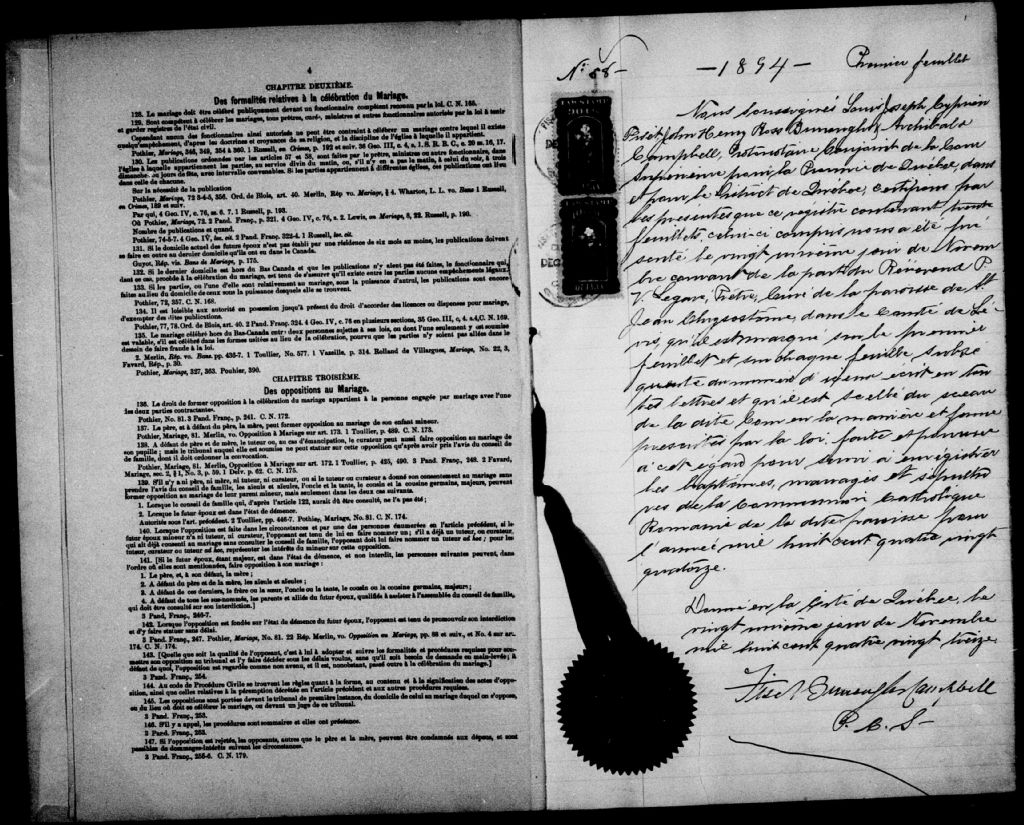 4
CHAPITRE DEUXIÈME.
Des formalités relatives à la célébration du Mariage.
128. Le mariage doit être célébré publiquement devant un fonctionnaire compétent reconnu par la loi. C. N. 165.
129. Sont compétent à célébrer les mariages, tous prêtres, curés, ministres et autres fonctionnaires autorisés par la loi à tenir
et garder registres de l'état civil.
Cependant aucun des fonctionnaires ainsi autorisés ne peut être contraint à célébrer un mariage contre lequel il existe
quelqu'empêchement, d'après les doctrines et croyances de sa religion, et la discipline de l'église à laquelle il appartient.
Pothier, Mariage, 346, 349, 354 à 360. 1 Russell, on Crimes, p. 192 et suiv. 36 Geo. III, c. 4, s. 1. S. R. B. C., c. 20 ss. 16, 17.
130. Les publications ordonnées par les articles 57 et 58, sont faites par le prêtre, ministre ou autre fonctionnaire, dans
l'église à laquelle appartiennent les parties, au service divin du matin, ou, s'il n'y en a pas le matin, à celui du soir, à trois
dimanches ou jours de fête, avec intervalle convenables. Si les parties appartiennent à différentes églises, ces publications ont lieu
dans celle de chacune.
Sur la nécessité de la publication
Pothier, Mariage, 72 3-4-5, 356. Ord. de Blois, art. 40. Merlin, Rép vo. Mariage, § 4. Wharton, L. L. vo. Bans 1 Russell,
on Crimes, 189 et suiv.
Par qui, 4 Geo. IV, c. 76, ss. 6. 7. 1 Russell, p. 193.
Où Pothier, Mariage, 72. 2 Pand. Franç., p. 321. 4 Geo. IV, c. 76, s. 2. Lewis, on Mariage, 8, 22. Russell, p. 190.
Nombre de publications et quand.
Pothier, 74-5-7. 4 Geo. IV, loc. cit. 2 Pand. Franç. 322-4. 1 Russell, loc. cit.
131. Si le domicile actuel des futurs époux n'est pas établi par une résidence de six mois au moins, les publications doivent
se faire en outre au dernier domicile qu'ils ont eu dans le Canada.
Guyot, Rép. vis. Bans de Mariage, p. 175.
132. Si le dernier domicile est hors du Bas Canada et que les publications n'y aient pas été faites, le fonctionnaire qui,
dans ce cas, procède à la célébration du mariage, est tenu de s'assurer qu'il n'existe entre les parties aucuns empêchements légaux.
133. Si les parties, ou l'une d'elles sont relativement au mariage, sous la puissance d'autrui, les publications sont encore
faites au lieu du domicile de ceux sous la puissance desquels elle se trouvent.
Pothier, 72, 357. C. N. 168.
134. Il est loisible aux autorité en possession jusqu'à présent du droit d'accorder des licences ou dispenses pour mariage,
d'exempter des dites publications.
Pothier, 77, 78. Ord. de Blois, art. 40. 2 Pand. Franç. 324. 4 Geo. IV, c. 76 en plusieurs sections, 35 Geo. III, c. 4, s. 4, C. N. 169.
135. Le mariage célébré hors du Bas-Canada entre deux personnes sujettes à ses lois, ou dont l'une seulement y est soumise
est valable, s'il est célébré dans les formes usitées au lieu de la célébration, pourvu que les parties n'y soient pas allées dans le
dessein de faire fraude à la loi.
2. Merlin, Rép. vo. Bans. pp. 436-7. 1 Toullier, No. 577. 1 Vazeille, p. 314. Rolland de Villargues, Mariage, No. 22, 3,
Favard, Rép., p. 30.
Pothier, Mariage, 327, 363. Pouhier, 390.
CHAPITRE TROISIÈME.
Des oppositions au Mariage.
136. Le droit de former opposition à la célébration du mariage appartient à la personne engagée par mariage avec l'une
des deux parties contractantes.
Pothier, No. 81. 3 Pand. Franç., p. 241. C. N. 172.
137. Le père, et à défaut du père, la mère, peut former opposition au mariage de son enfant mineur.
Pothier, Mariage, 81. Merlin, vo. Opposition à Mariage sur art. 173. 1 Toullier, p. 489. C. N. 173.
138. A défaut de père et de mère, le tuteur ou, au cas d'émancipation, le curateur peut aussi faire opposition au mariage de
son pupille ; mais le tribunal auquel elle est soumise ne peut statuer sur cette opposition qu'après avoir pris l'avis du conseil
de famille, dont il doit ordonner la convocation.
Pothier, Mariage, 81. Merlin, Opposition à Mariage sur art. 172. 1 Toullier, p. 425, 490. 3 Pand. Franç., 248. 2 Favard,
Mariage, sec. 2, § 1, No. 3, p. 59. 1 Delv. p. 62. C. N. 175.
139. S'il n'y a ni père, ni mère, ni tuteur, ni curateur, ou si le tuteur ou curateur a donné son consentement au mariage sans
prendre l'avis du conseil de famille, les aïeuls et aïeules, l'oncle et la tante, le cousin et la cousine germains, majeurs, peuvent
former opposition au mariage de leur parent mineur, mais seulement dans les deux cas suivants.
1. Lorsque le conseil de famille qui, d'après l'article 122, aurait dû être consulté, ne l'a pas été ;
2. Lorsque le futur époux est dans l'état de démence.
Autorités sous l'art. précédent. 2 Toullier, pp. 446-7. Pothier, Mariage, No. 81. C. N. 174.
140. Lorsque l'opposition est faite dans les circonstances et par une des personnes énumérées en l'article précédent, si le
futur époux mineur n'a ni tuteur, ni curateur, l'opposant est tenu de lui en faire nommer un ; s'il a déjà un tuteur, ou curateur,
qui ait déjà consenti au mariage sans consulter le conseil de famille, l'opposant doit lui faire nommer un tuteur ad hoc ; pour les
tuteur, curateur ou tuteur ad hoc, représenter les intérêts du mineur sur cette opposition.
141. [Si le futur époux, étant majeur, est dans l'état de démence, et non interdit, les personnes suivantes peuvent, dans
l'ordre où elles sont mentionnées, faire opposition à son mariage :
1. Le père, et, à son défaut, la mère ;
2. A défaut du père et de la mère, les aïeuls et aïeules ;
3. A défaut de ces derniers, le frère ou la sœur, l'oncle ou la tante, le cousin ou la cousine germains, majeurs ;
4. A défaut de tous les sus-nommés, les parents et alliés du futur époux, qualifiés à assister à l'assemblée du conseil de famille,
qui doit être consulté sur son interdiction.]
3 Pand, Franç., 246-7.
142. Lorsque l'opposition est fondée sur l'état du démence du futur époux, l'opposant est tenu de promouvoir son interdiction
et d'y faire statuer sans délai.
3 Pand. Franç., 247. Pothier, Mariage, No. 81. 22 Rép. Merlin, vo. Opposition au Mariage, pp. 68 et suiv., et No. 4 sur art.
174. C. N. 174.
143. [Quelle que soit la qualité de l'opposant, c'est à lui à adopter et suivre les formalités et procédures requises pour sou-
mettre son opposition au tribunal et l'y faire décider sous les délais voulus, sans qu'il soit besoin de demande en main-levée ; à
défaut de quoi, l'opposition est regardée comme non avenu, et il est, nonobstant, passé outre à la célébration du mariage.]
3 Pand. Franç., 254.
144. Au code de Procédure Civile se trouvent les règles quant à la forme, au contenu et à la signification des actes d'oppo-
sition, ainsi que celles relatives à la péremption décrétée en l'article précédent et aux autres procédures requises.
145. Les oppositions sont portées devant le tribunal de première instance, du domicile de celui au mariage duquel on s'oppose,
ou du lieu où doit se célébrer le mariage, ou devant un juge de ce tribunal.
3 Pand. Franç., 253.
146. S'il y a appel, les procédures sont sommaires et elles ont préséance.
3 Pand. Franç., 253.
147. Si l'opposition est rejetée, les opposants, autres que le père et la mère, peuvent être condamnés aux dépens, et sont
passibles de dommages-intérêts suivant les circonstances.
3 Pand. Franç., 256-6. C. N. 179.
No 88 — 1894 — Premier feuillet
Nous soussignés Louis Joseph Cyprien
Fiset, John Henry Ross Burroughs, Archibald
Campbell, Protonotaire Conjoint de la Cour
Supérieure pour la Province de Québec, dans
et pour le District de Québec, certifions par
les présentes que ce registre contenant trente
feuillets, celui-ci compris nous a été pré
senté le vingt unième jour de Novem
bre courant de la part du Révérend P.
V. Legaré, Prêtre, Curé de la paroisse de St
Jean Chrysostome, dans le Comté de Lé-
vis, qu'il est marqué sur le premier
feuillet et sur chaque feuillet subsé
quent du numéro d'icelui écrit en tou
tes lettres et qu'il est scellé du sceau
de la dite Cour en la manière et forme
prescrites par la loi faite et pourvue
à cet égard pour servir à enregistrer
les baptêmes, mariages et sépultu
res de la Communion Catholique
Romaine de la dite paroisse pour
l'année mil huit cent quatre vingt
quatorze.
Donné en la Cité de Québec, le
vingt unième jour de Novembre
mil huit cent quatre vingt treize
Fiset Burroughs Campbell
P. C. S.